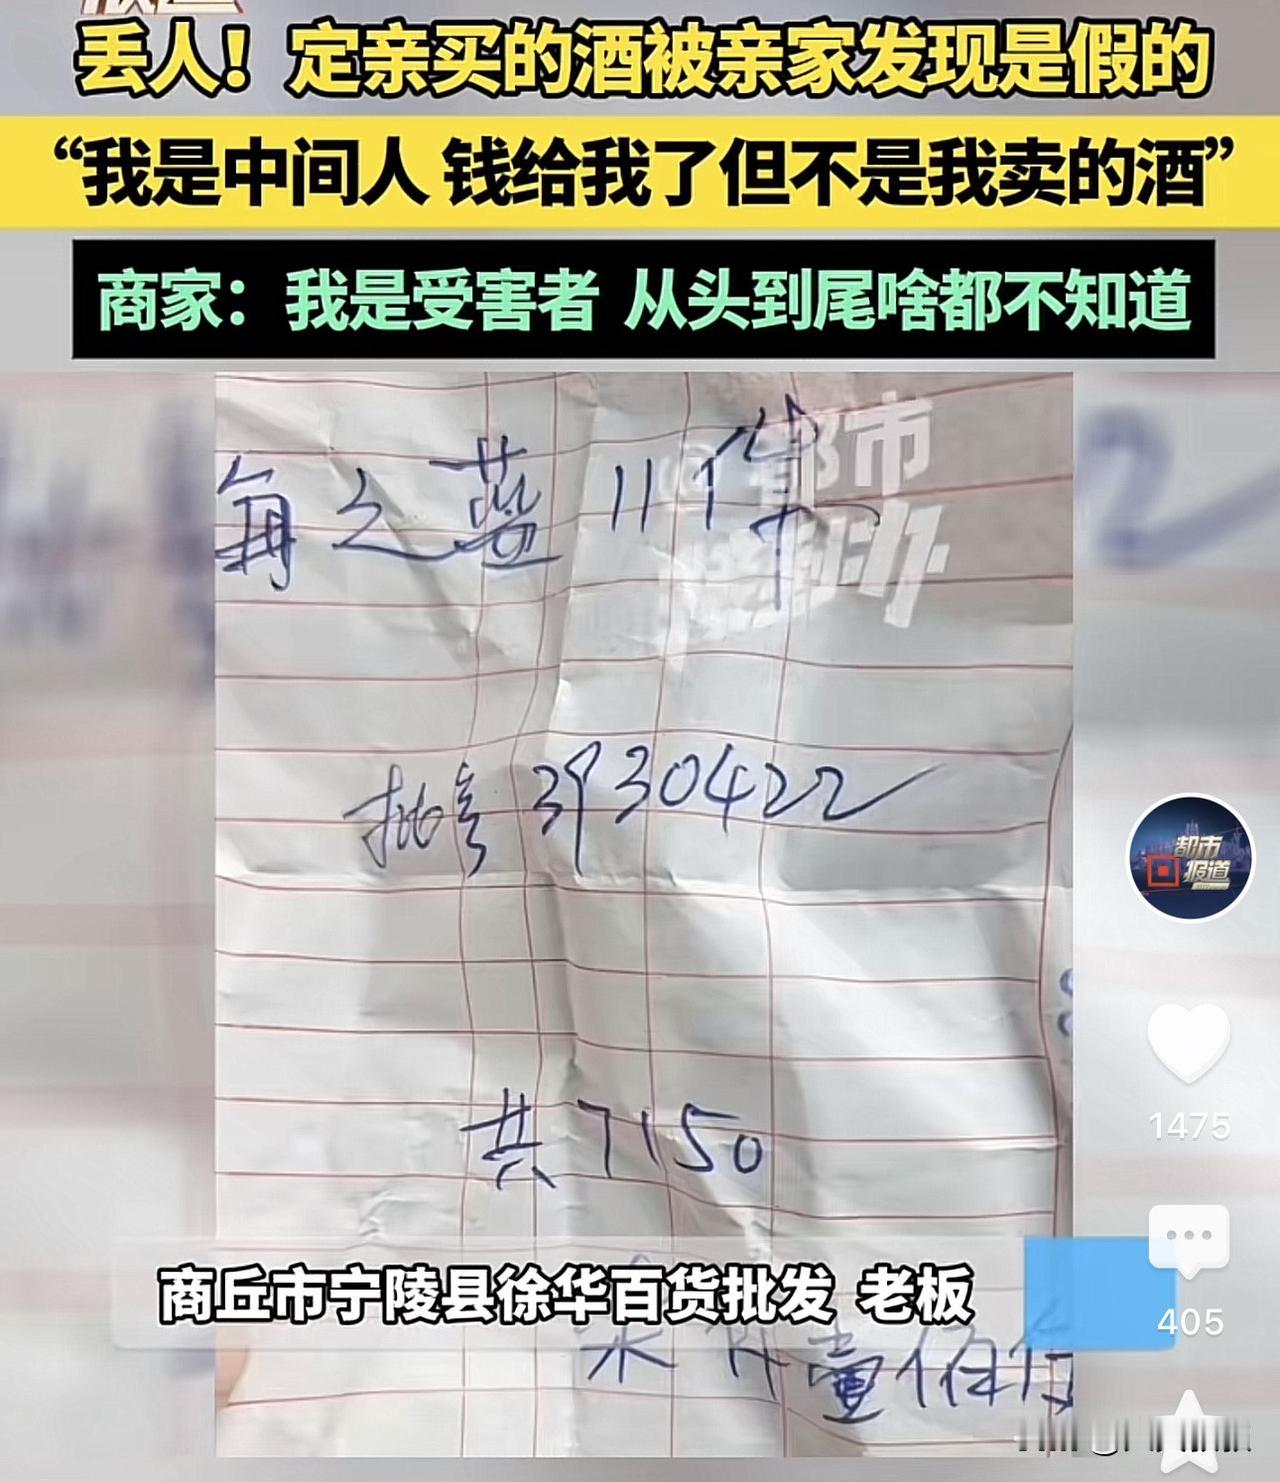 丢人！定亲买的酒被亲家发现是假的
“我是中间人 钱给我了但不是我卖的酒”
商家：我是受害者 从头到尾啥都不知道
@都市报道
海之蓝 11件
批号 3930422
都市
报道
1475
共7150
商丘市宁陵县徐华百货批发 老板
405
柒仟壹佰伍